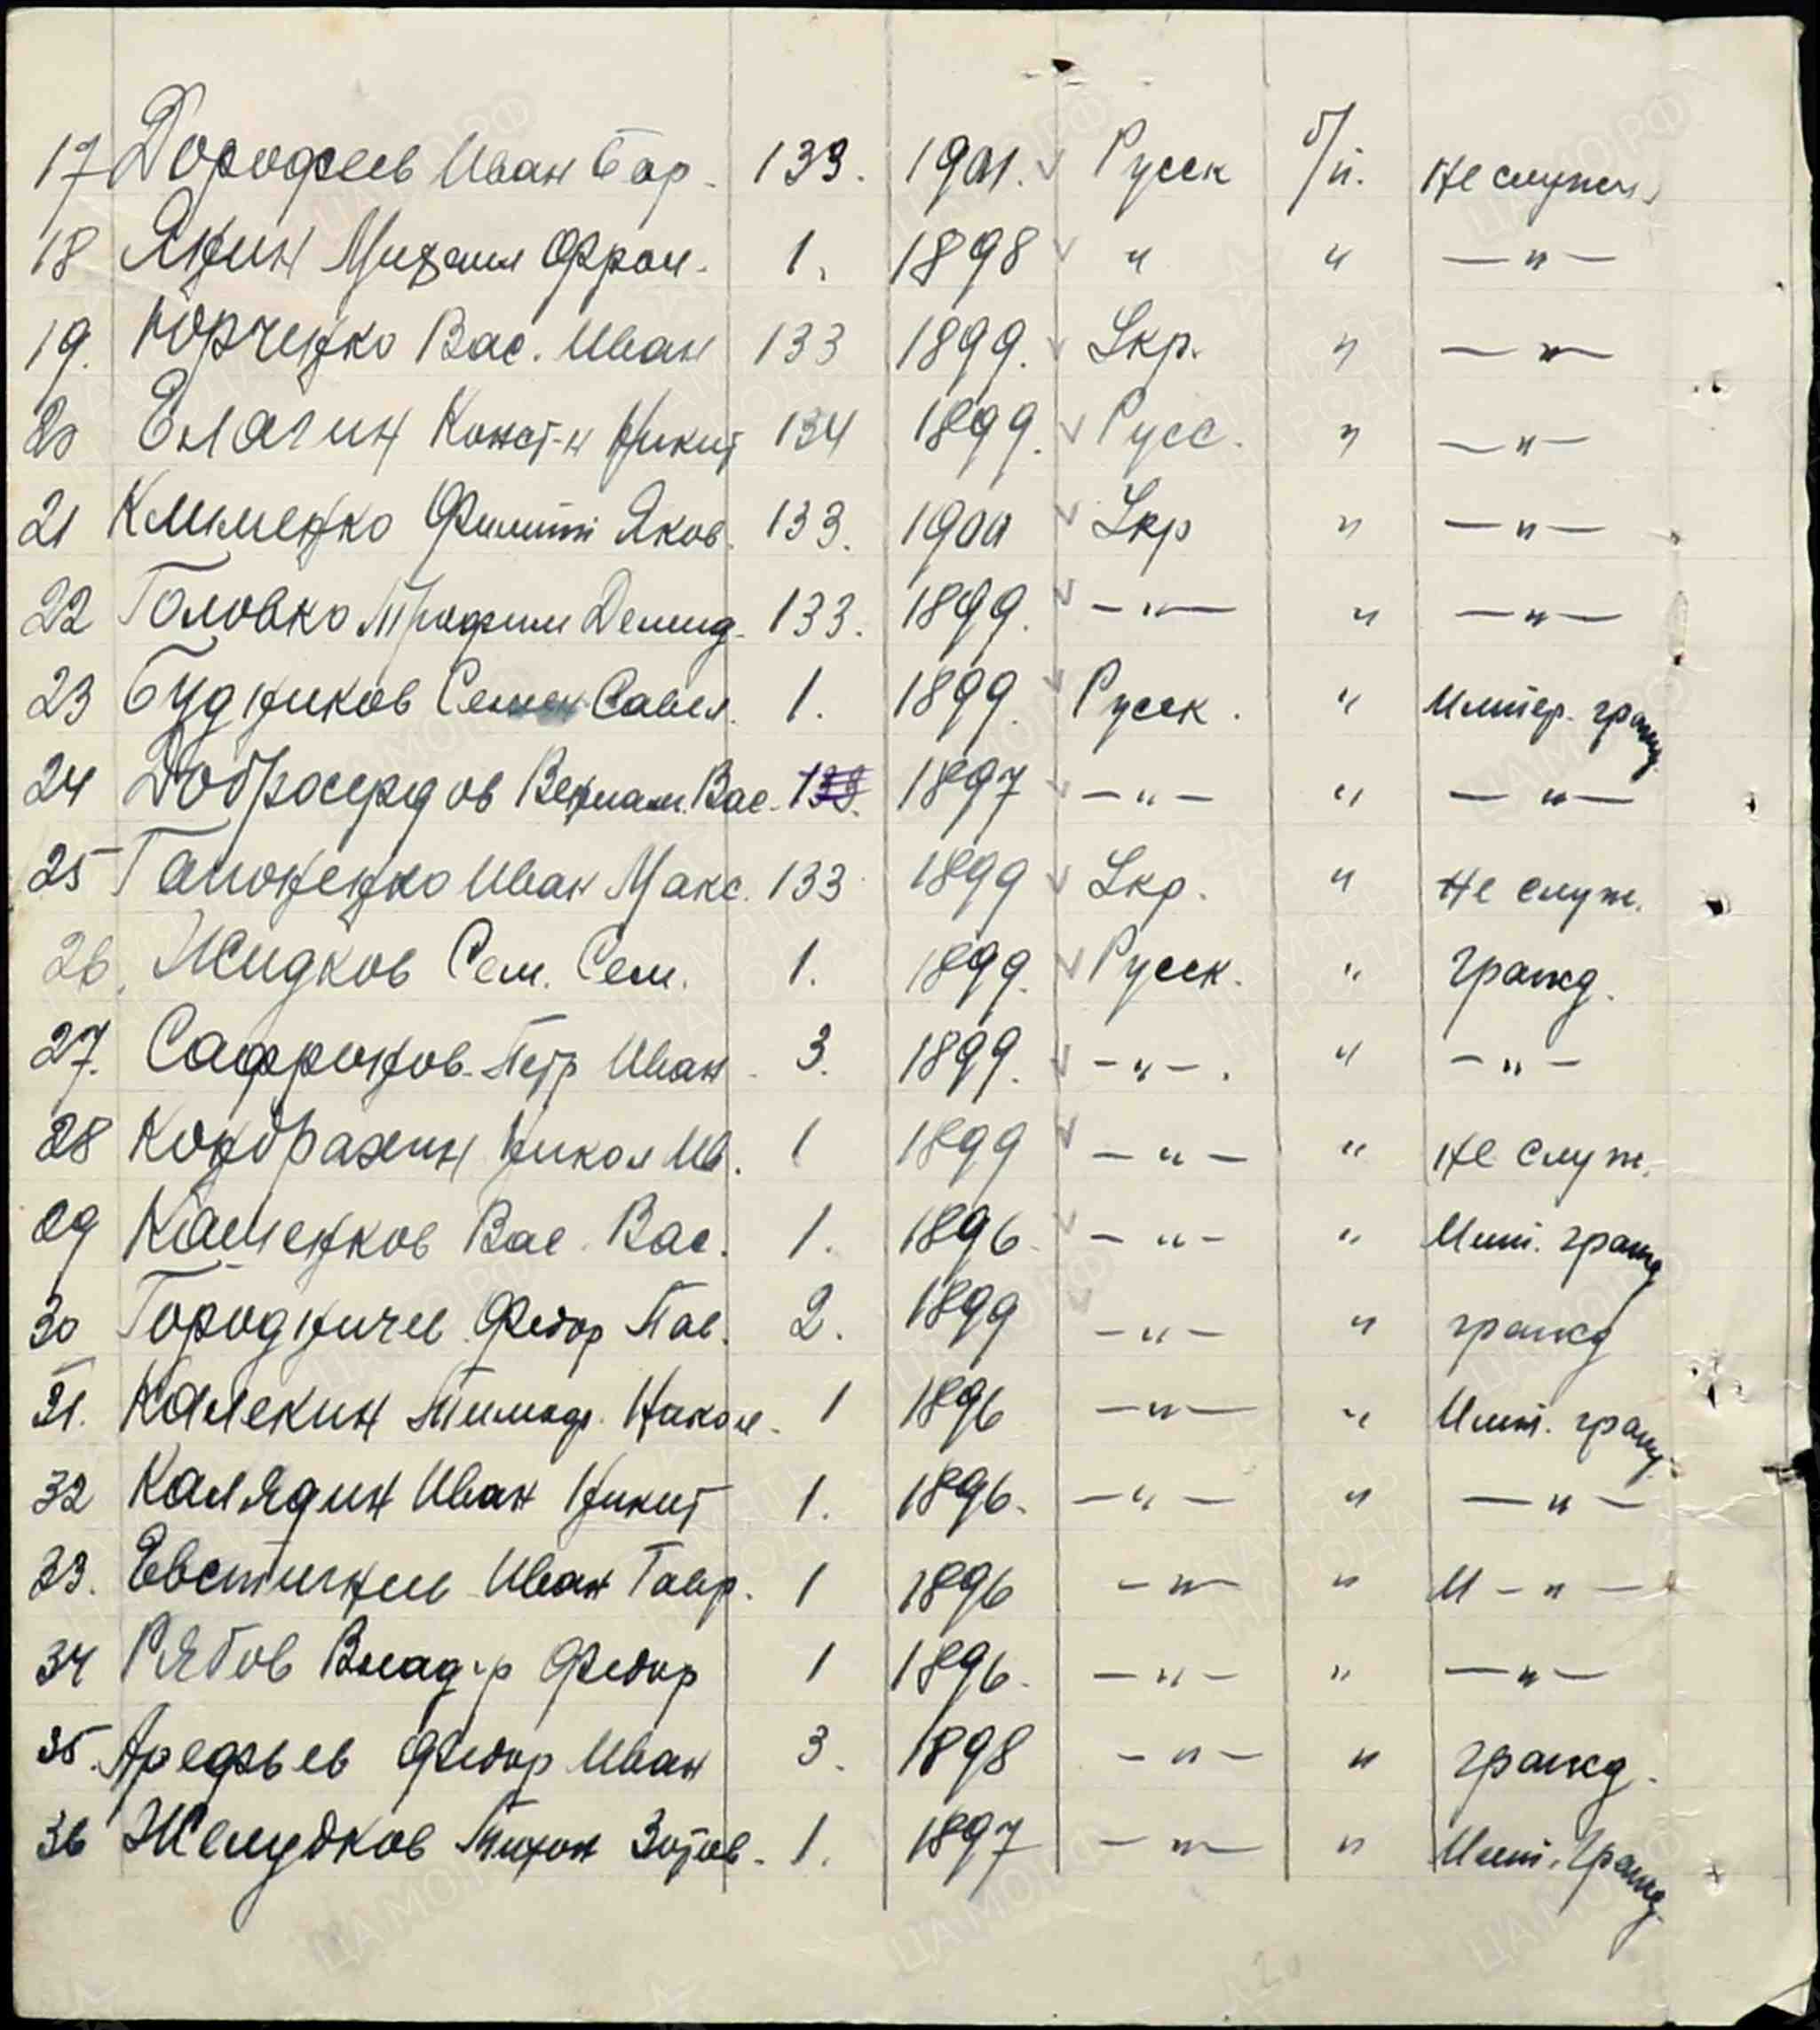 17 Дорофеев Иван Бор. 133. 1901. Русск б/п. Не служил
18 Якун Михаил Афрон. 1. 1898 " " — " —
19. Юрченко Вас. Иван 133 1899. Укр. " — " —
20 Елагин Конст-н Никит 134 1899. Русс. " — " —
21 Клименко Филипп Яков. 133. 1900 Укр " — " —
22 Головко Трофим Демид. 133. 1899. — " — " — " —
23 Будников Семен Савел. 1. 1899. Русск. " Импер. гражд
24 Добросердов Вениам. Вас. 133. 1897 — " — " — " —
25 Гапоненко Иван Макс. 133 1899 Укр. " Не служ.
26. Жидков Сем. Сем. 1. 1899. Русск. " Гражд.
27. Сафронов Петр Иван. 3. 1899. — " —. " — " —
28 Кондрахин Никол Ив. 1 1899 — " — " Не служ.
29 Каменков Вас. Вас. 1. 1896. — " — " Имп. гражд
30 Городничев Федор Пав. 2. 1899 — " — " гражд
31. Калекин Тимоф. Никол. 1 1896 — " — " Имп. гражд
32 Калядин Иван Никит 1. 1896. — " — " — " —
33. Евстигнеев Иван Гавр. 1 1896 — " — " И — " —
34 Рябов Влад-р Федор 1 1896. — " — " — " —
35. Арефьев Федор Иван 3. 1898 — " — " гражд.
36 Желудков Тихон Зотов. 1. 1897 — " — " Имп. Гражд